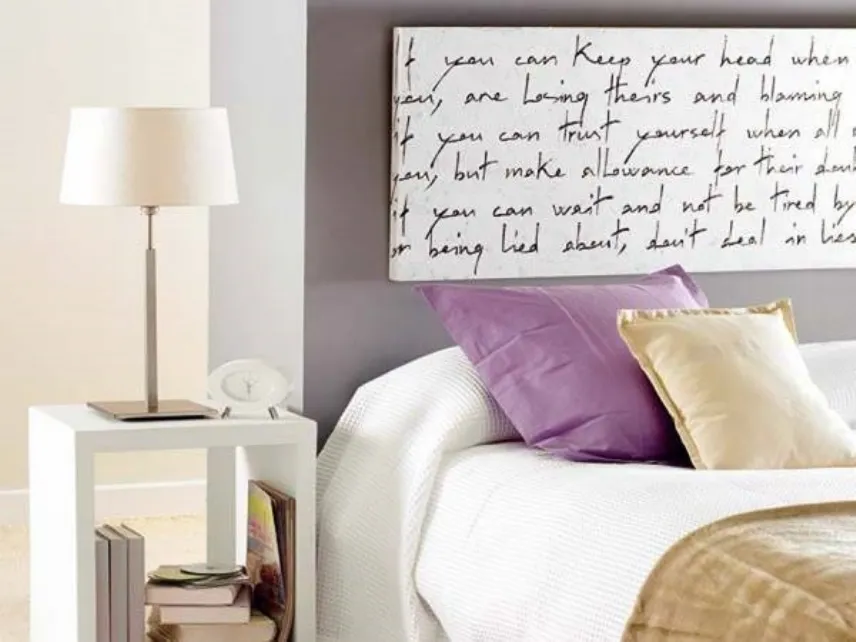 If you can Keep your head when
you, are Losing theirs and blaming
if you can trust yourself when all
you, but make allowance for their doub
if you can wait and not be tired by
or being lied about, don't deal in lies